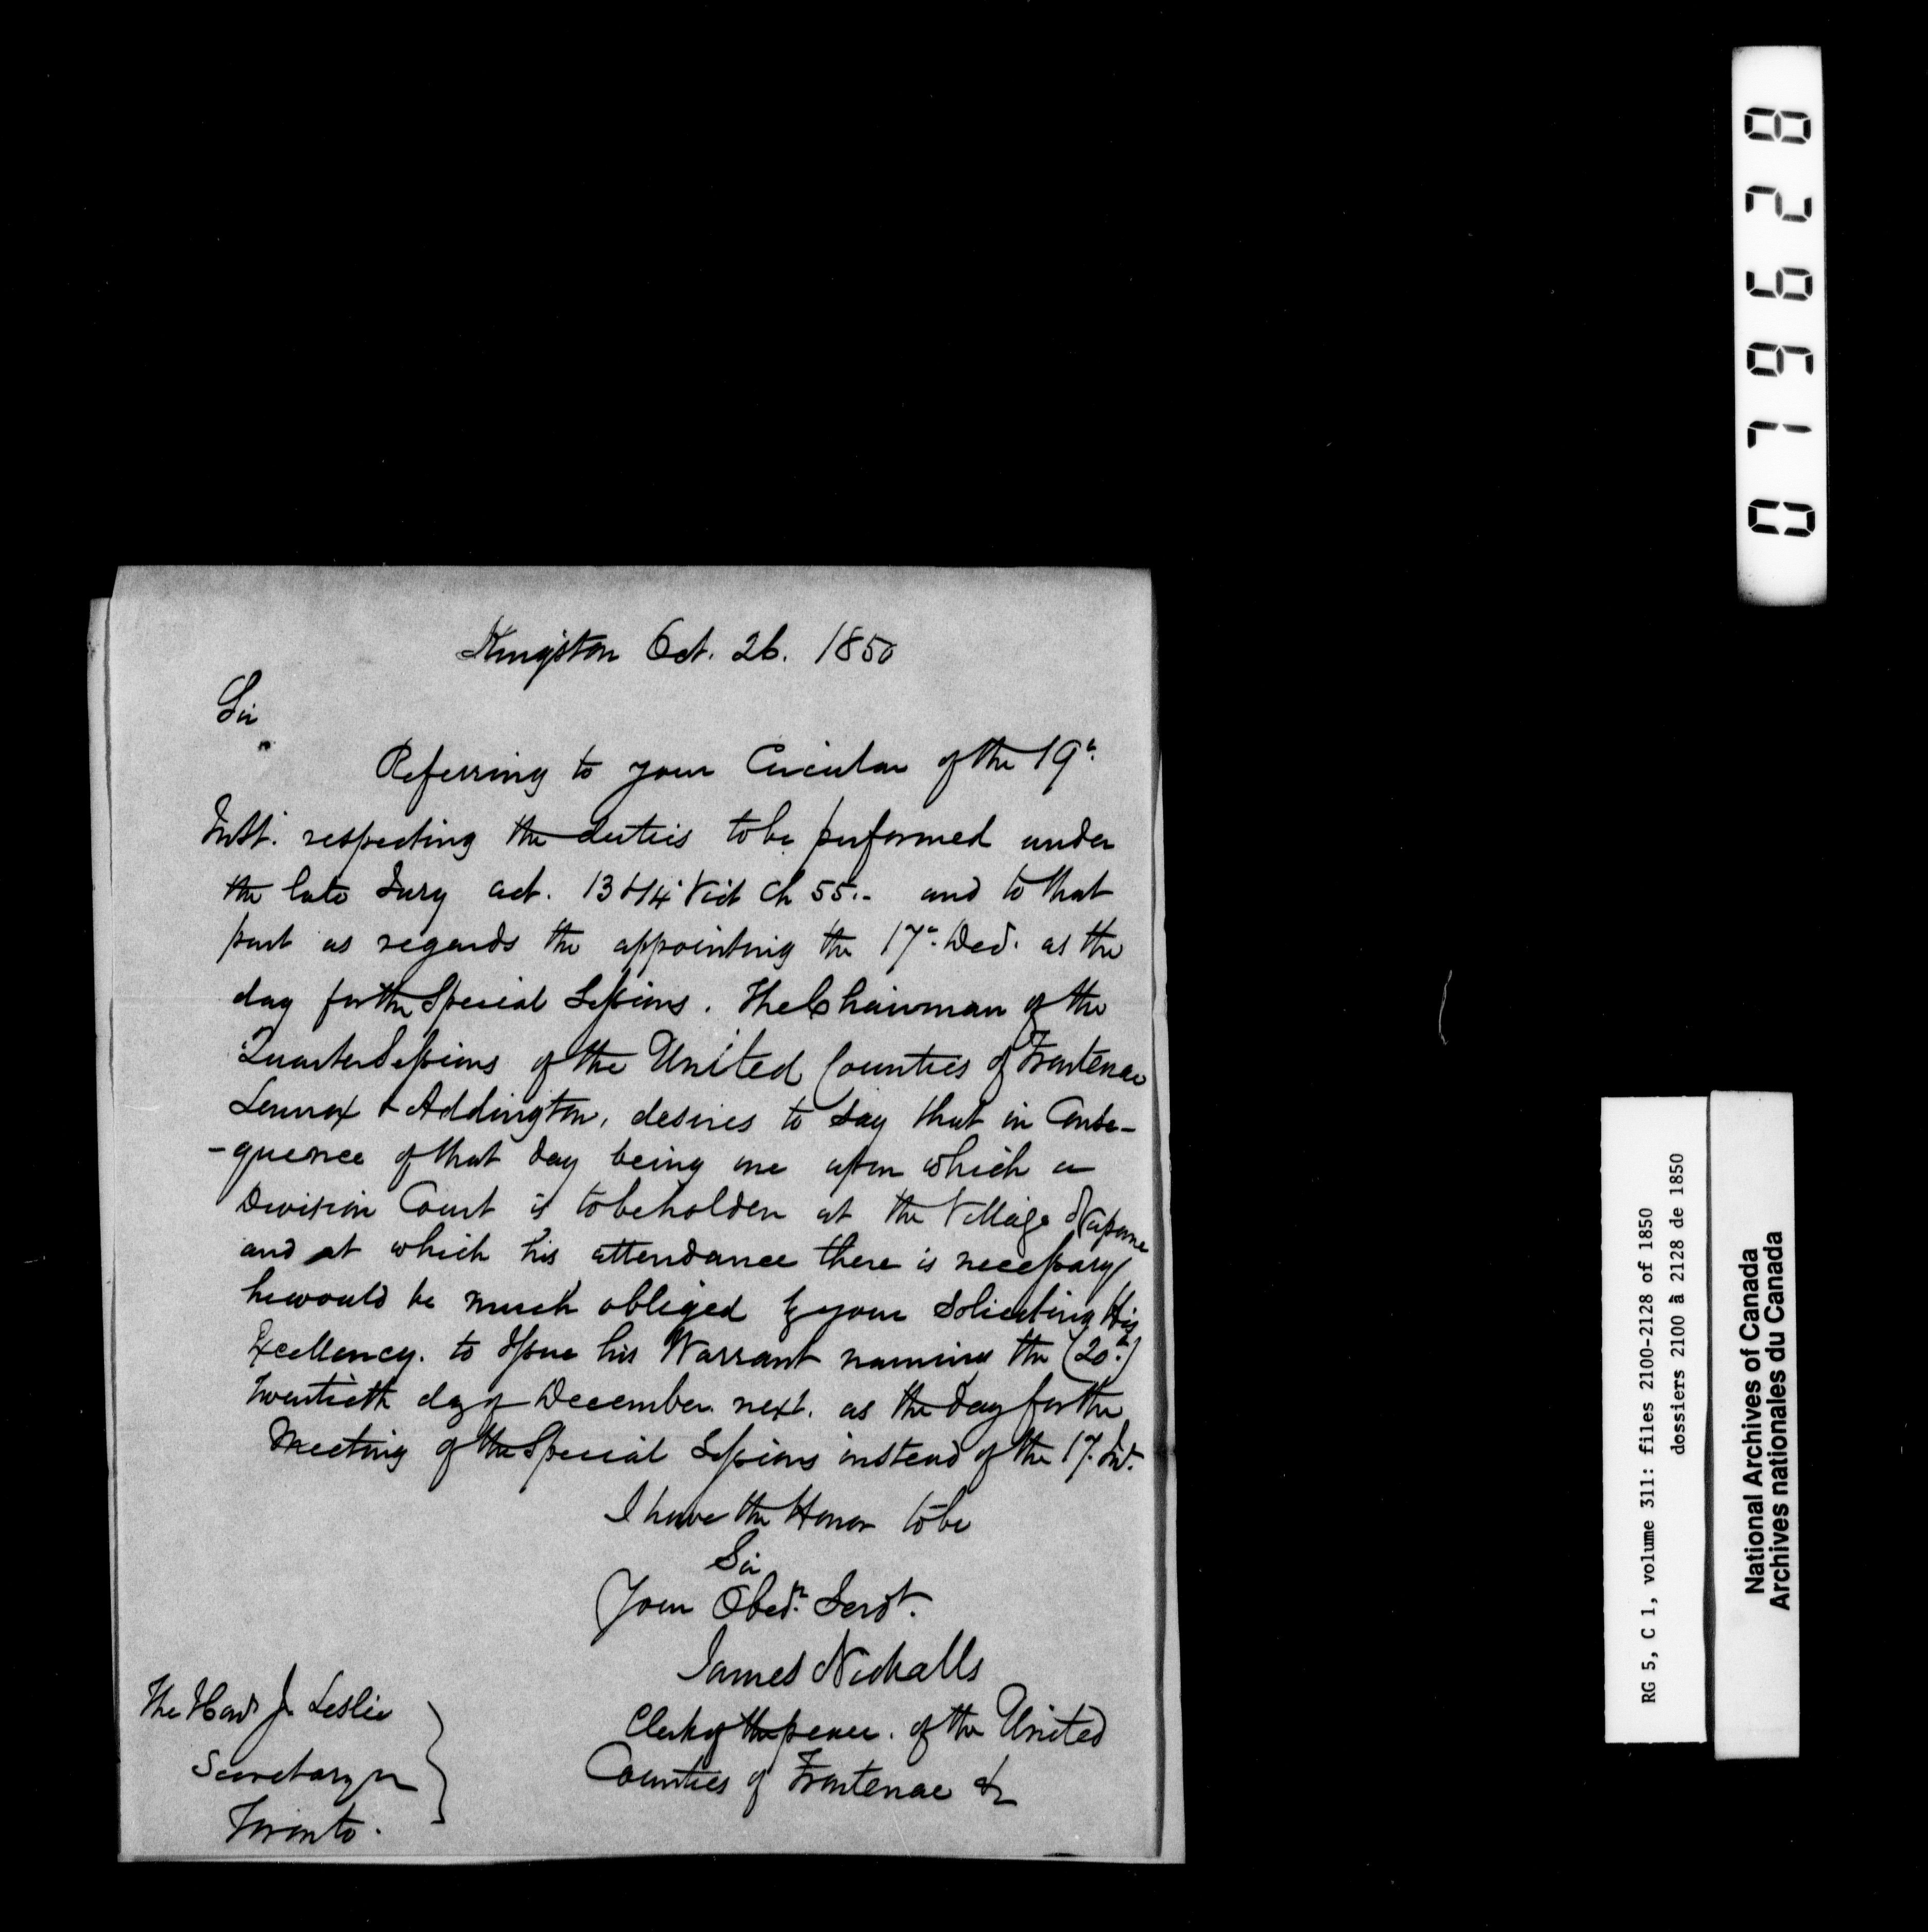 Kingston Oct. 26. 1850
Sir
Referring to your Circular of the 19th
Inst. respecting the duties to be performed under
the late Jury act. 13 & 14 Vict Ch 55.- and to that
part as regards the appointing the 17th Dec. as the
day for the Special Sessions. The Chairman of the
Quarter Sessions of the United Counties of Frontenac
Lennox & Addington, desires to say that in Conse-
-quence of that day being one upon which a
Division Court is to be holden at the Village Napanee
and at which his attendance there is necessary
he would be much obliged by your Soliciting His
Excellency. to Issue his Warrant naming the (20th)
twentieth day of December next. as the day for the
Meeting of the Special Sessions instead of the 17.
I have the Honor to be
Sir
Your Obedt. Servt.
James Nickalls
Clerk of the peace. of the United
Counties of Frontenac &c
The Hon. J. Leslie
Secretary
Toronto.
079628
RG 5, C 1, volume 311: files 2100-2128 of 1850
dossiers 2100 à 2128 de 1850
National Archives of Canada
Archives nationales du Canada